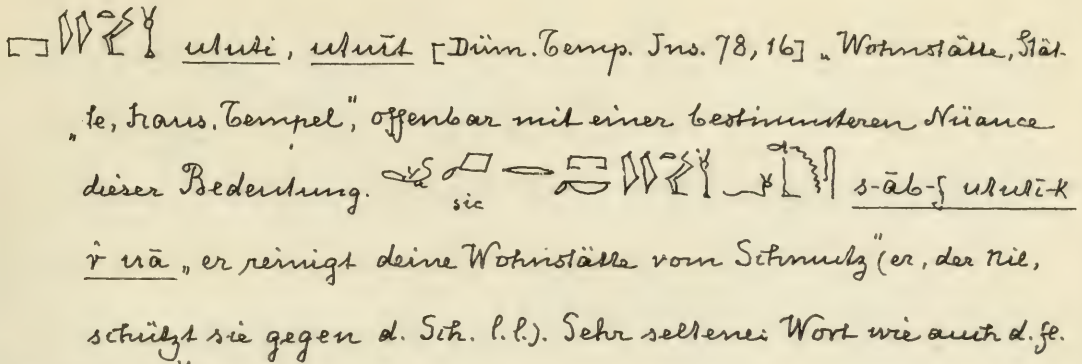 uluti, uluīt [Düm. Temp. Ins. 78, 16] „Wohnstätte, Stät-
„te, Haus, Tempel", offenbar mit einer bestimmteren Nüance
dieser Bedeutung. sic s-āb-f uluti-k
r̂ uā „er reinigt deine Wohnstätte vom Schmutz" (er, der Nil,
schützt sie gegen d. Sch. l.l.). Sehr seltenes Wort wie auch d. fl.